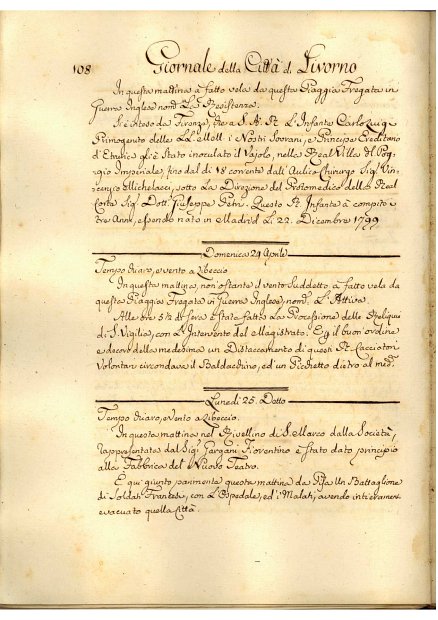 108 Giornale della Città di Livorno
In questa mattina à fatto vela da questa Piaggia Fregata in
Guerra Inglese nom.ª La Resistenza.
Si è inteso da Firenze, che a S. A. R. L'Infante Carlo Luigi
Primogenito delle LL. MM. i Nostri Sovrani, e Principe Ereditario
d'Etruria gli è stato inoculato il Vajolo, nella Real Villa del Pog-
gio Imperiale, fino dal dì 18 corrente dall'Aulico Chirurgo Sig.
Vin-
cenzio Michelacci, sotto la Direzione del Protomedico della Real
Corte Sig.e Dott. Giuseppe Petri. Questo R. Infante à compito i
tre Anni, essendo nato in Madrid li 22. Dicembre 1799
Domenica 24 Aprile
Tempo chiaro, e vento a libeccio
In questa mattina, non ostante il vento suddetto à fatto vela da
questa Piaggia Fregata in Guerra Inglese, nom.ª L'Attiva.
Alle ore 5½ di sera è stata fatta la Processione delle Reliquie
di S. Vigilia, con L'Intervento del Magistrato. E g il buon ordine
e decoro della medesima un Distaccamento di questi R. Cacciatori
Volontari circondava il Baldacchino, ed un Picchetto dietro al med.º
Lunedi 25. Detto
Tempo chiaro, e Vento a Libeccio.
In questa mattina nel Rivellino di S. Marco dalla Società,
rappresentata dal Sig.e Gargani Fiorentino è stato dato principio
alla Fabbrica del Nuovo Teatro.
È qui giunto parimente questa mattina da Pisa Un Battaglione
di Soldati Francesi, con L'Ospedale, ed i Malati, avendo intieramen.e
evacuato quella Città.